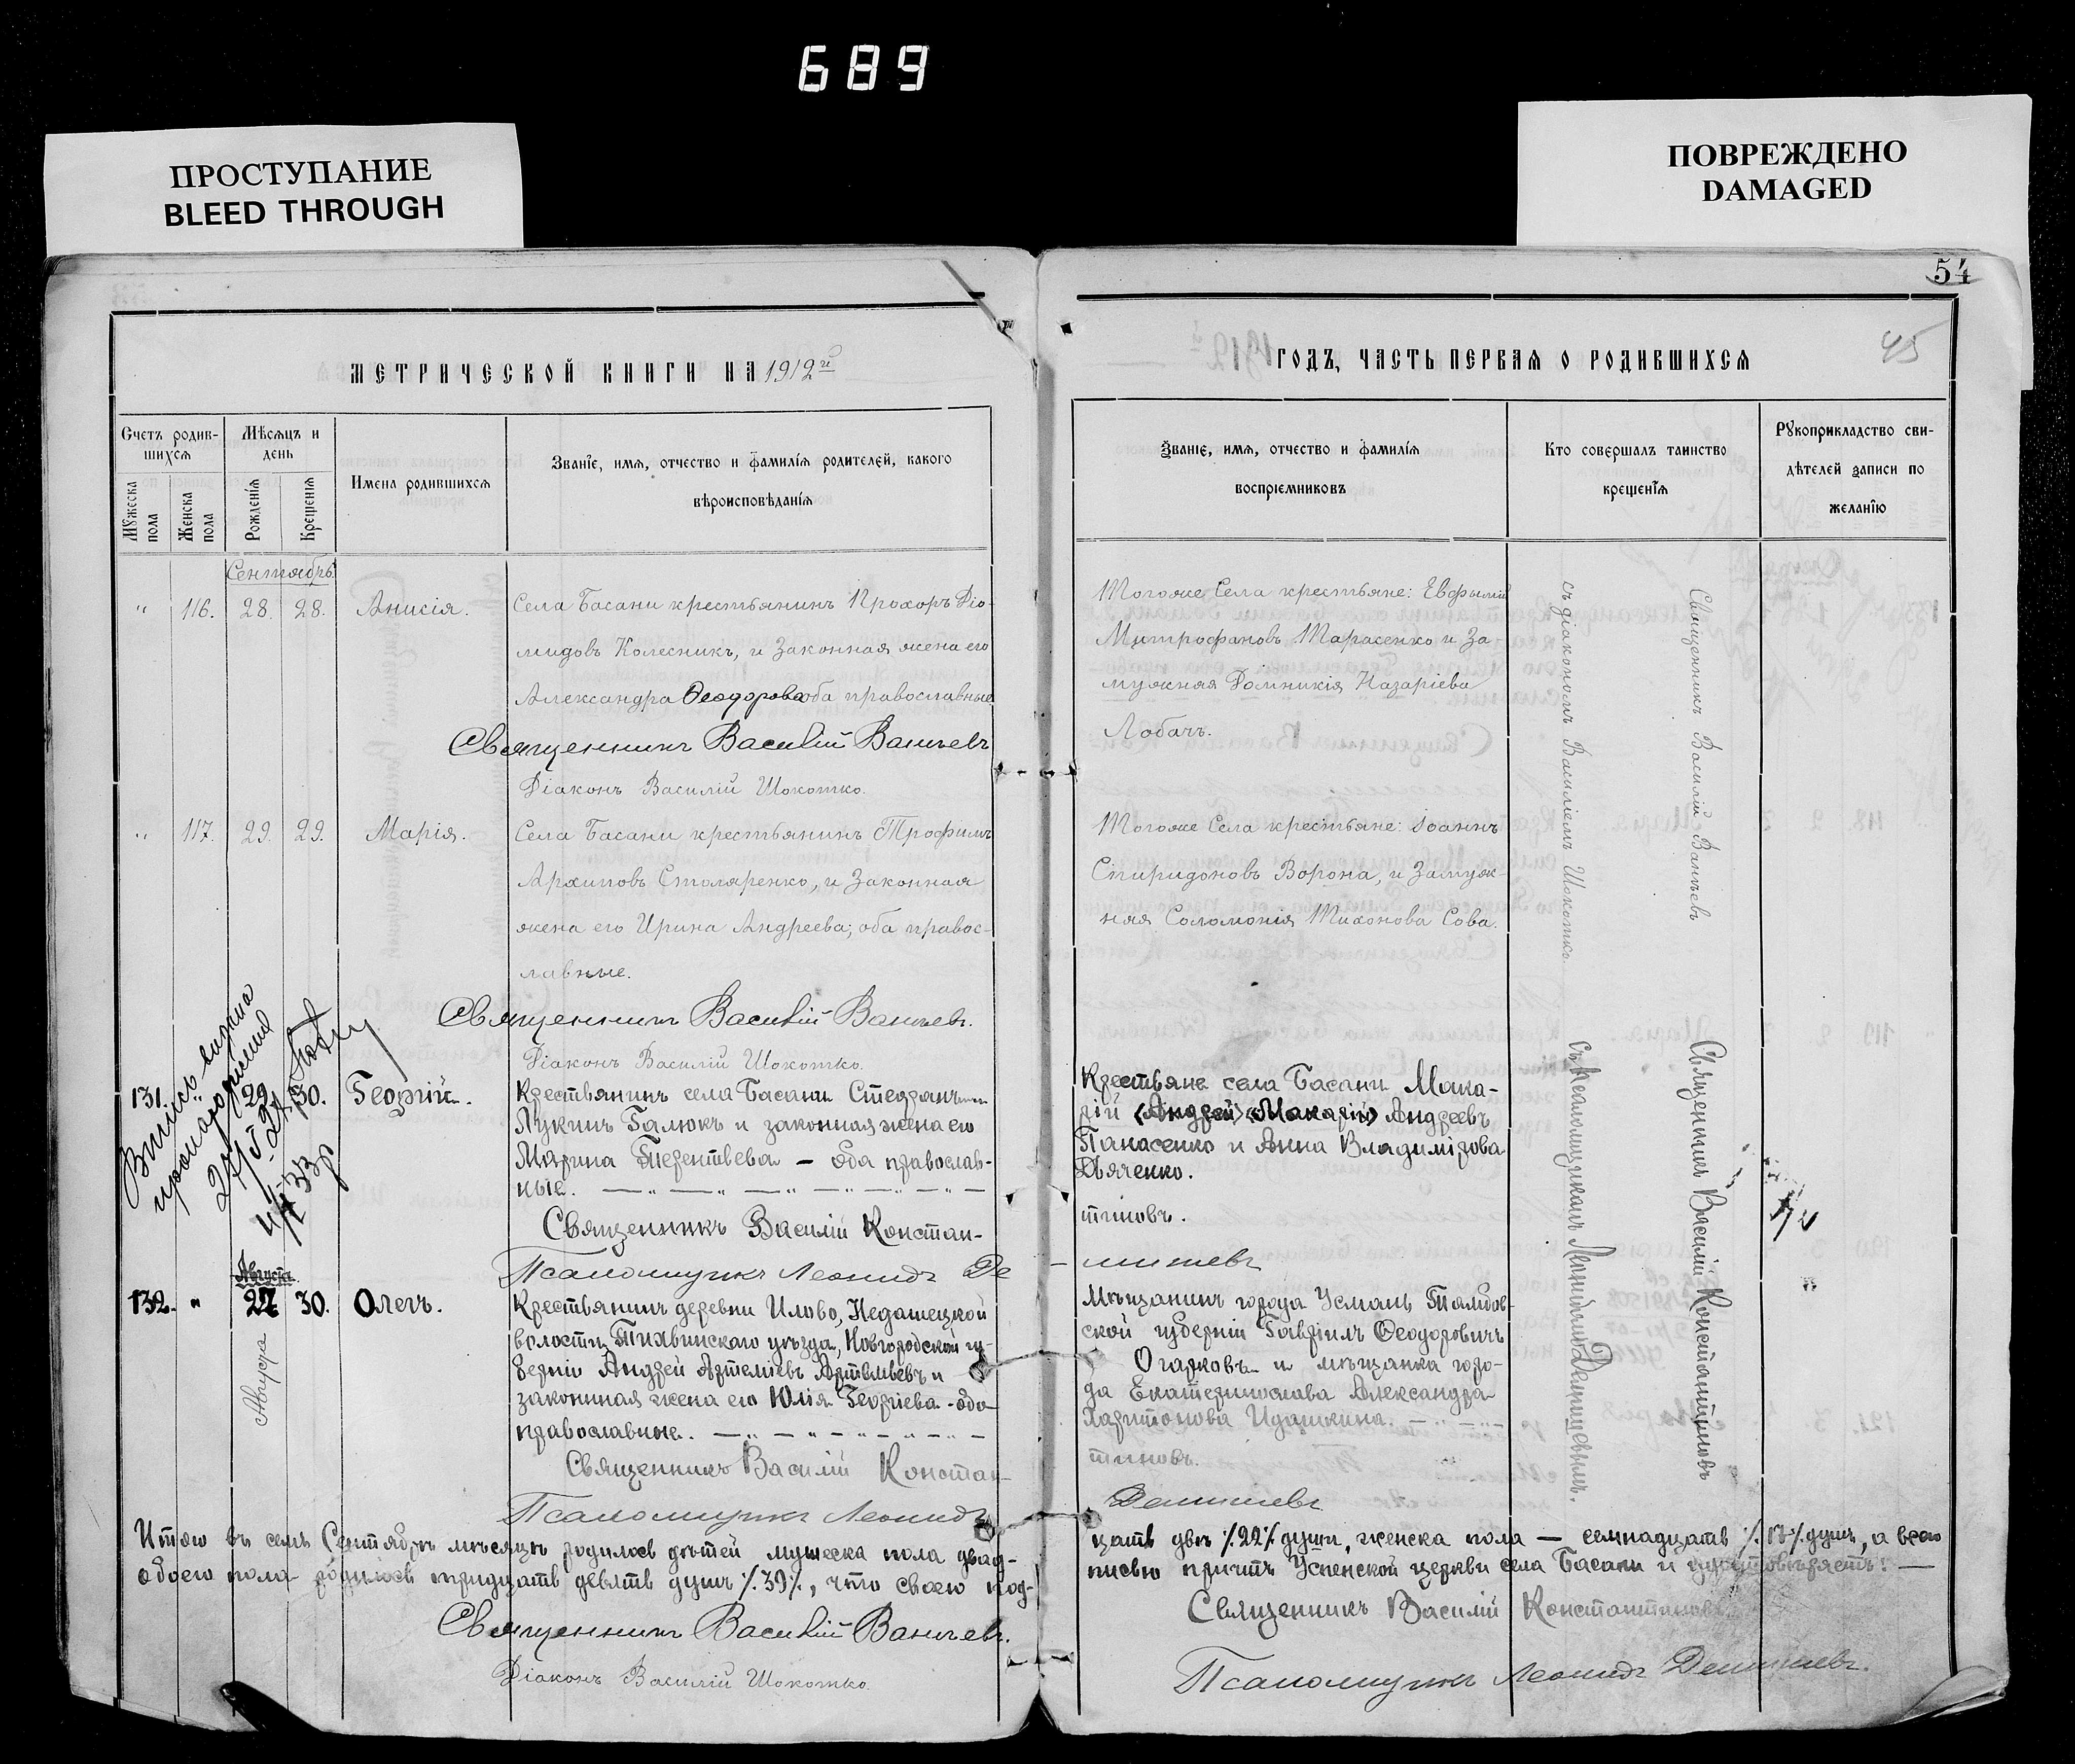 689
ПРОСТУПАНИЕ
BLEED THROUGH
ПОВРЕЖДЕНО
DAMAGED
54
45
МЕТРИЧЕСКОЙ КНИГИ НА 1912й
Счетъ родив-
шихся
Мѣсяцъ и
день
Мужеска
пола
Женска
пола
Рожденія
Крещенія
Имена родившихся
Званіе, имя, отчество и фамилія родителей, какого
вѣроисповѣданія
Сентябрь
" 116. 28. 28. Анисія.
Села Басани крестьянинъ Прохоръ Діо-
мидовъ Колесникъ, и законная жена его
Александра Ѳеодорова оба православные
Священникъ Василій Ванчевъ
Діаконъ Василій Шокотко.
" 117. 29. 29. Марія.
Села Басани крестьянинъ Трофимъ
Архиповъ Столяренко, и законная
жена его Ирина Андреева; оба правос-
лавные.
Священникъ Василій Ванчевъ.
Діаконъ Василій Шокотко.
131. " 29. 30. Георгій.
Крестьянинъ села Басани Стефанъ
Лукинъ Галюкъ и законная жена его
Марина Терентьева — оба православ-
ные.
Священникъ Василій Констан-
Псаломщикъ Леонидъ Де
Августа
132. " 27 30. Олегъ.
Августа
Крестьянинъ деревни Илово, Недашецкой
волости, Тихвинскаго уѣзда, Новгородской гу-
берніи Андрей Артеміевъ Артемьевъ и
законная жена его Юлія Георгіева - оба
православные.
Священникъ Василій Констан-
Псаломщикъ Леонидъ
Итого въ семъ Сентябрѣ мѣсяцѣ родилось дѣтей мужеска пола двад-
обоего пола родилось тридцать девять душъ /.39/., что своею под-
Священникъ Василій Ванчевъ.
Діаконъ Василій Шокотко.
ГОДЪ, ЧАСТЬ ПЕРВАЯ О РОДИВШИХСЯ
Званіе, имя, отчество и фамилія
воспріемниковъ
Кто совершалъ таинство
крещенія
Рукоприкладство сви-
дѣтелей записи по
желанію
Тогоже Села крестьяне: Евфимій
Митрофановъ Тарасенко и за
мужняя Домникія Назаріева
Лобачъ.
Тогоже Села крестьяне: Іоаннъ
Спиридоновъ Ворона, и замуж-
няя Соломонія Тихонова Сова.
Священникъ Василій Ванчевъ
съ діакономъ Василіемъ Шокотко.
Крестьяне села Басани Мака-
рій (Андрей) (Макарій) Андреевъ
Панасенко и Анна Владимірова
Дьяченко.
тиновъ.
Мѣщанинъ города Усмань Тамбов-
ской губерніи Гавріилъ Ѳеодоровичъ
Огарковъ и мѣщанка горо-
да Екатеринослава Александра
Харитонова Идашкина.
тиновъ.
Демишевъ
Священникъ Василій Константиновъ
съ псаломщикомъ Леонидомъ Демишевымъ.
цать двѣ /.22/. души, женска пола — семнадцать /.17/. душъ, а всего
писью причтъ Успенской церкви села Басани и удостовѣряетъ: —
Священникъ Василій Константиновъ
Псаломщикъ Леонидъ Демишевъ.